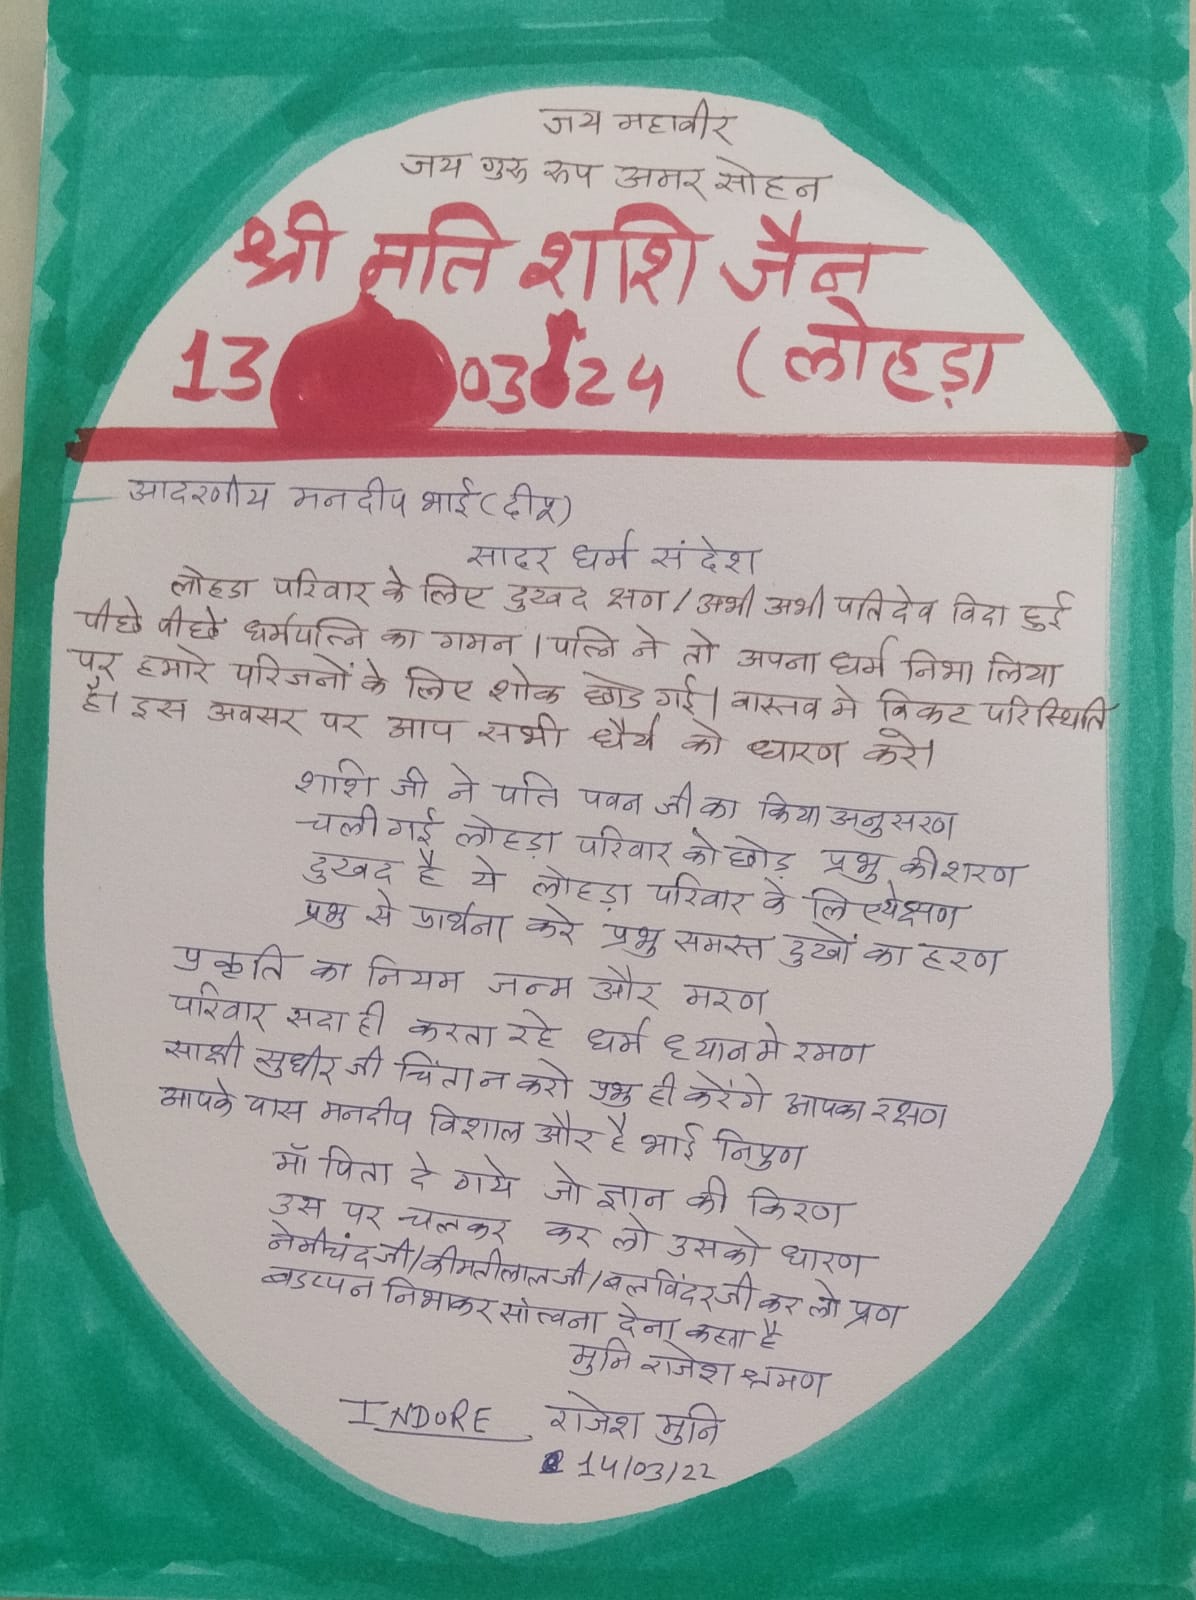 जय महावीर
जय गुरु रुप अमर सोहन
श्री मति शशि जैन
13 03 24 (लोहड़ा
आदरणीय मनदीप भाई (दीपू)
सादर धर्म संदेश
लोहडा परिवार के लिए दुखद क्षण / अभी अभी पतिदेव विदा हुई
पीछे पीछे धर्मपत्नि का गमन । पत्नि ने तो अपना धर्म निभा लिया
पर हमारे परिजनों के लिए शोक छोड गई। वास्तव मे विकट परिस्थिति
है। इस अवसर पर आप सभी धैर्य को धारण करे।
शशि जी ने पति पवन जी का किया अनुसरण
चली गई लोहड़ा परिवार को छोड़ प्रभु की शरण
दुखद है ये लोहड़ा परिवार के लिए ये क्षण
प्रभु से प्रार्थना करे प्रभु समस्त दुखों का हरण
प्रकृति का नियम जन्म और मरण
परिवार सदा ही करता रहे धर्म ध्यान मे रमण
साक्षी सुधीर जी चिंता न करो प्रभु ही करेंगे आपका रक्षण
आपके पास मनदीप विशाल और है भाई निपुण
माँ पिता दे गये जो ज्ञान की किरण
उस पर चलकर कर लो उसको धारण
नेमीचंद जी / कीमतीलाल जी / बलविंदर जी कर लो प्रण
बडप्पन निभाकर सांत्वना देना कहता है
मुनि राजेश श्रमण
INDORE राजेश मुनि
14/03/22